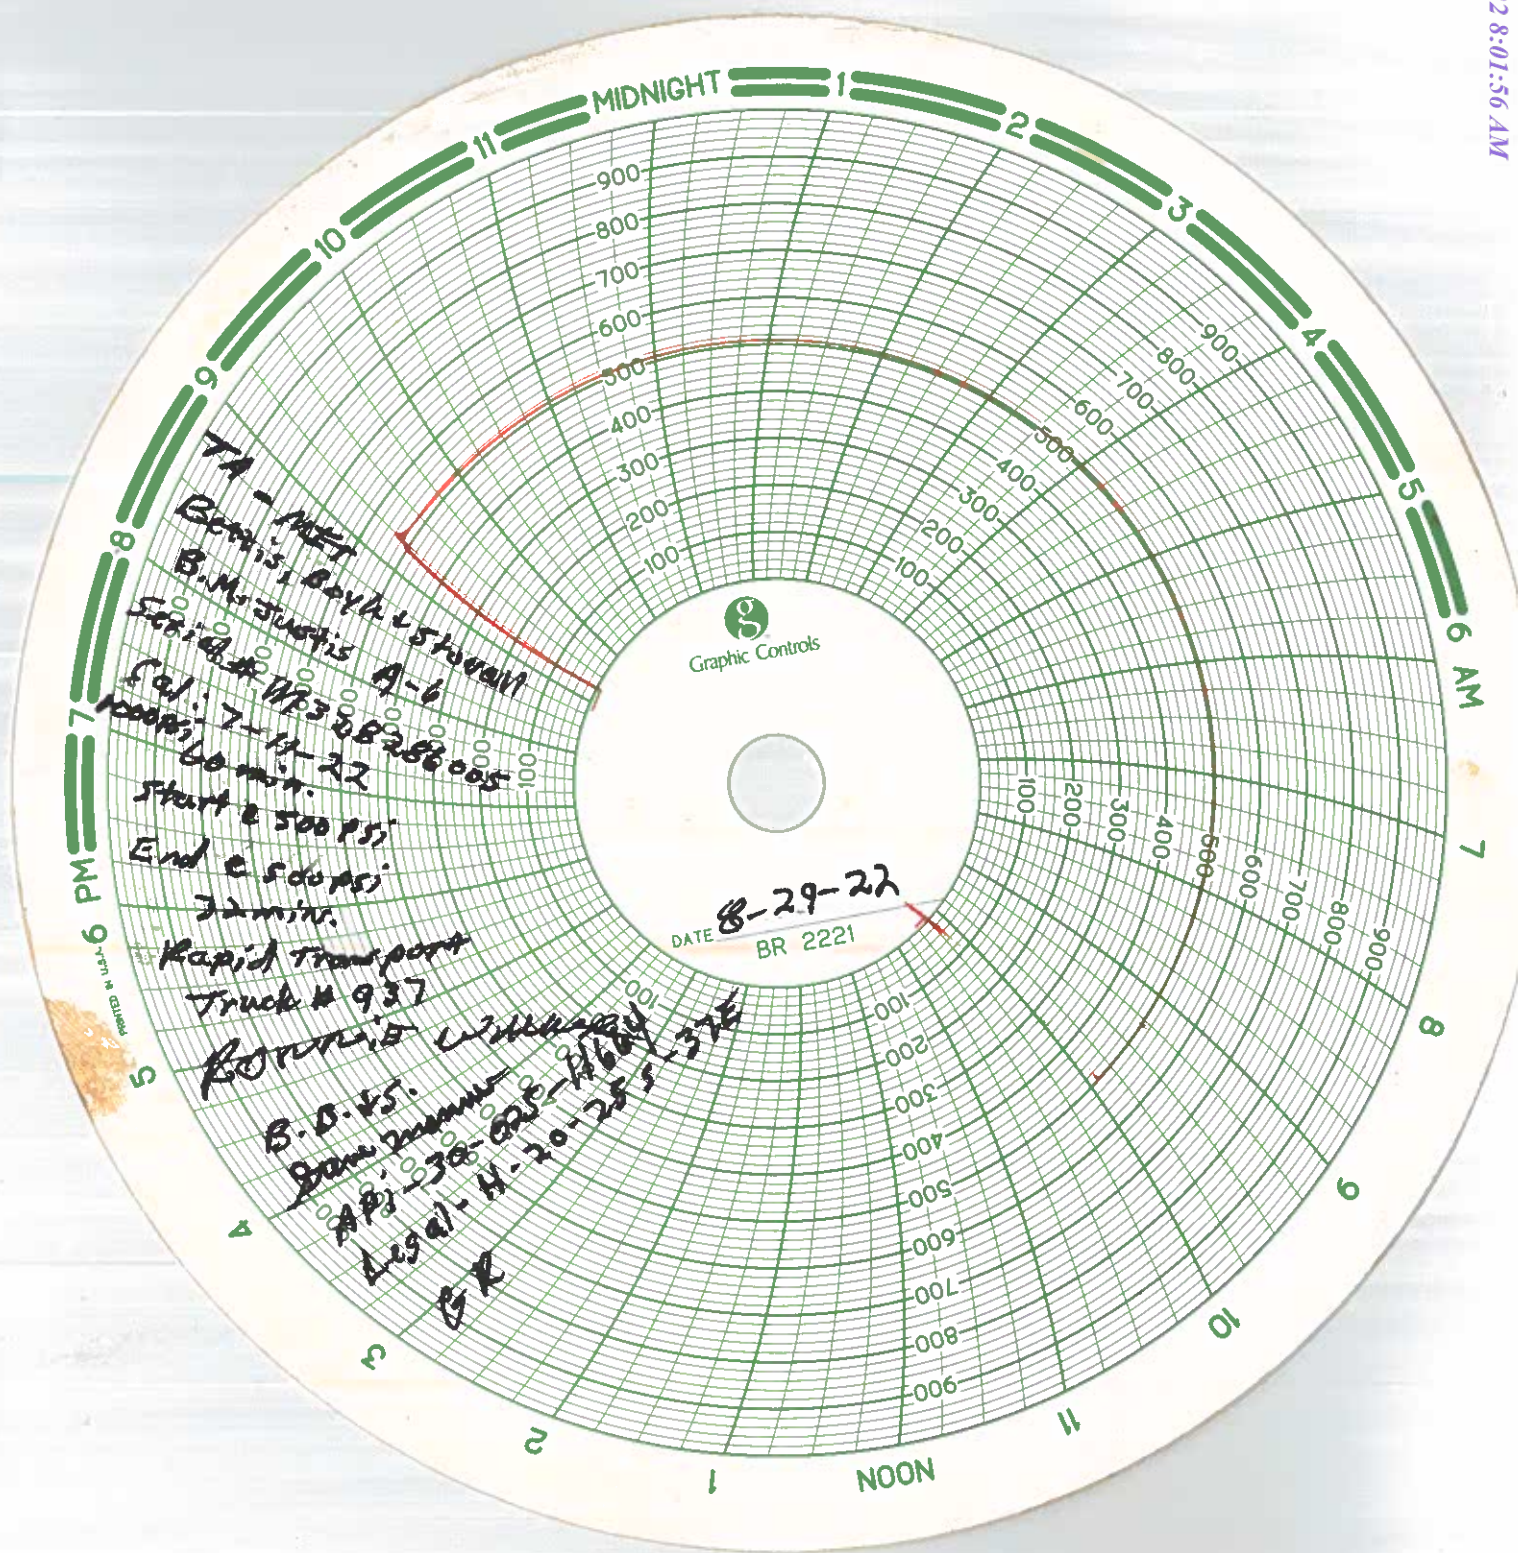 22 8:01:56 AM
MIDNIGHT 1 2 3 4 5 6 AM 7 8 9 10 11 NOON 1 2 3 4 5 6 PM 7 8 9 10 11
900 800 700 600 500 400 300 200 100
900 800 700 600 500 400 300 200 100
100 200 300 400 500 600 700 800 900
100 200 300 400 500 600 700 800 900
100
100
g
Graphic Controls
DATE 8-29-22
BR 2221
PRINTED IN U.S.A.
TA - MET
Bettis, Boyle & Stovall
B.M. Justis A-6
Serial # 
Cal: 7-11-22
1000psi
60 min.
Start @ 500 psi
End @ 500 psi
32 min.
Rapid Transport
Truck # 937
Ronnie
B.B.&S.
API-30-025-11664
Legal- H-20-25S-37E